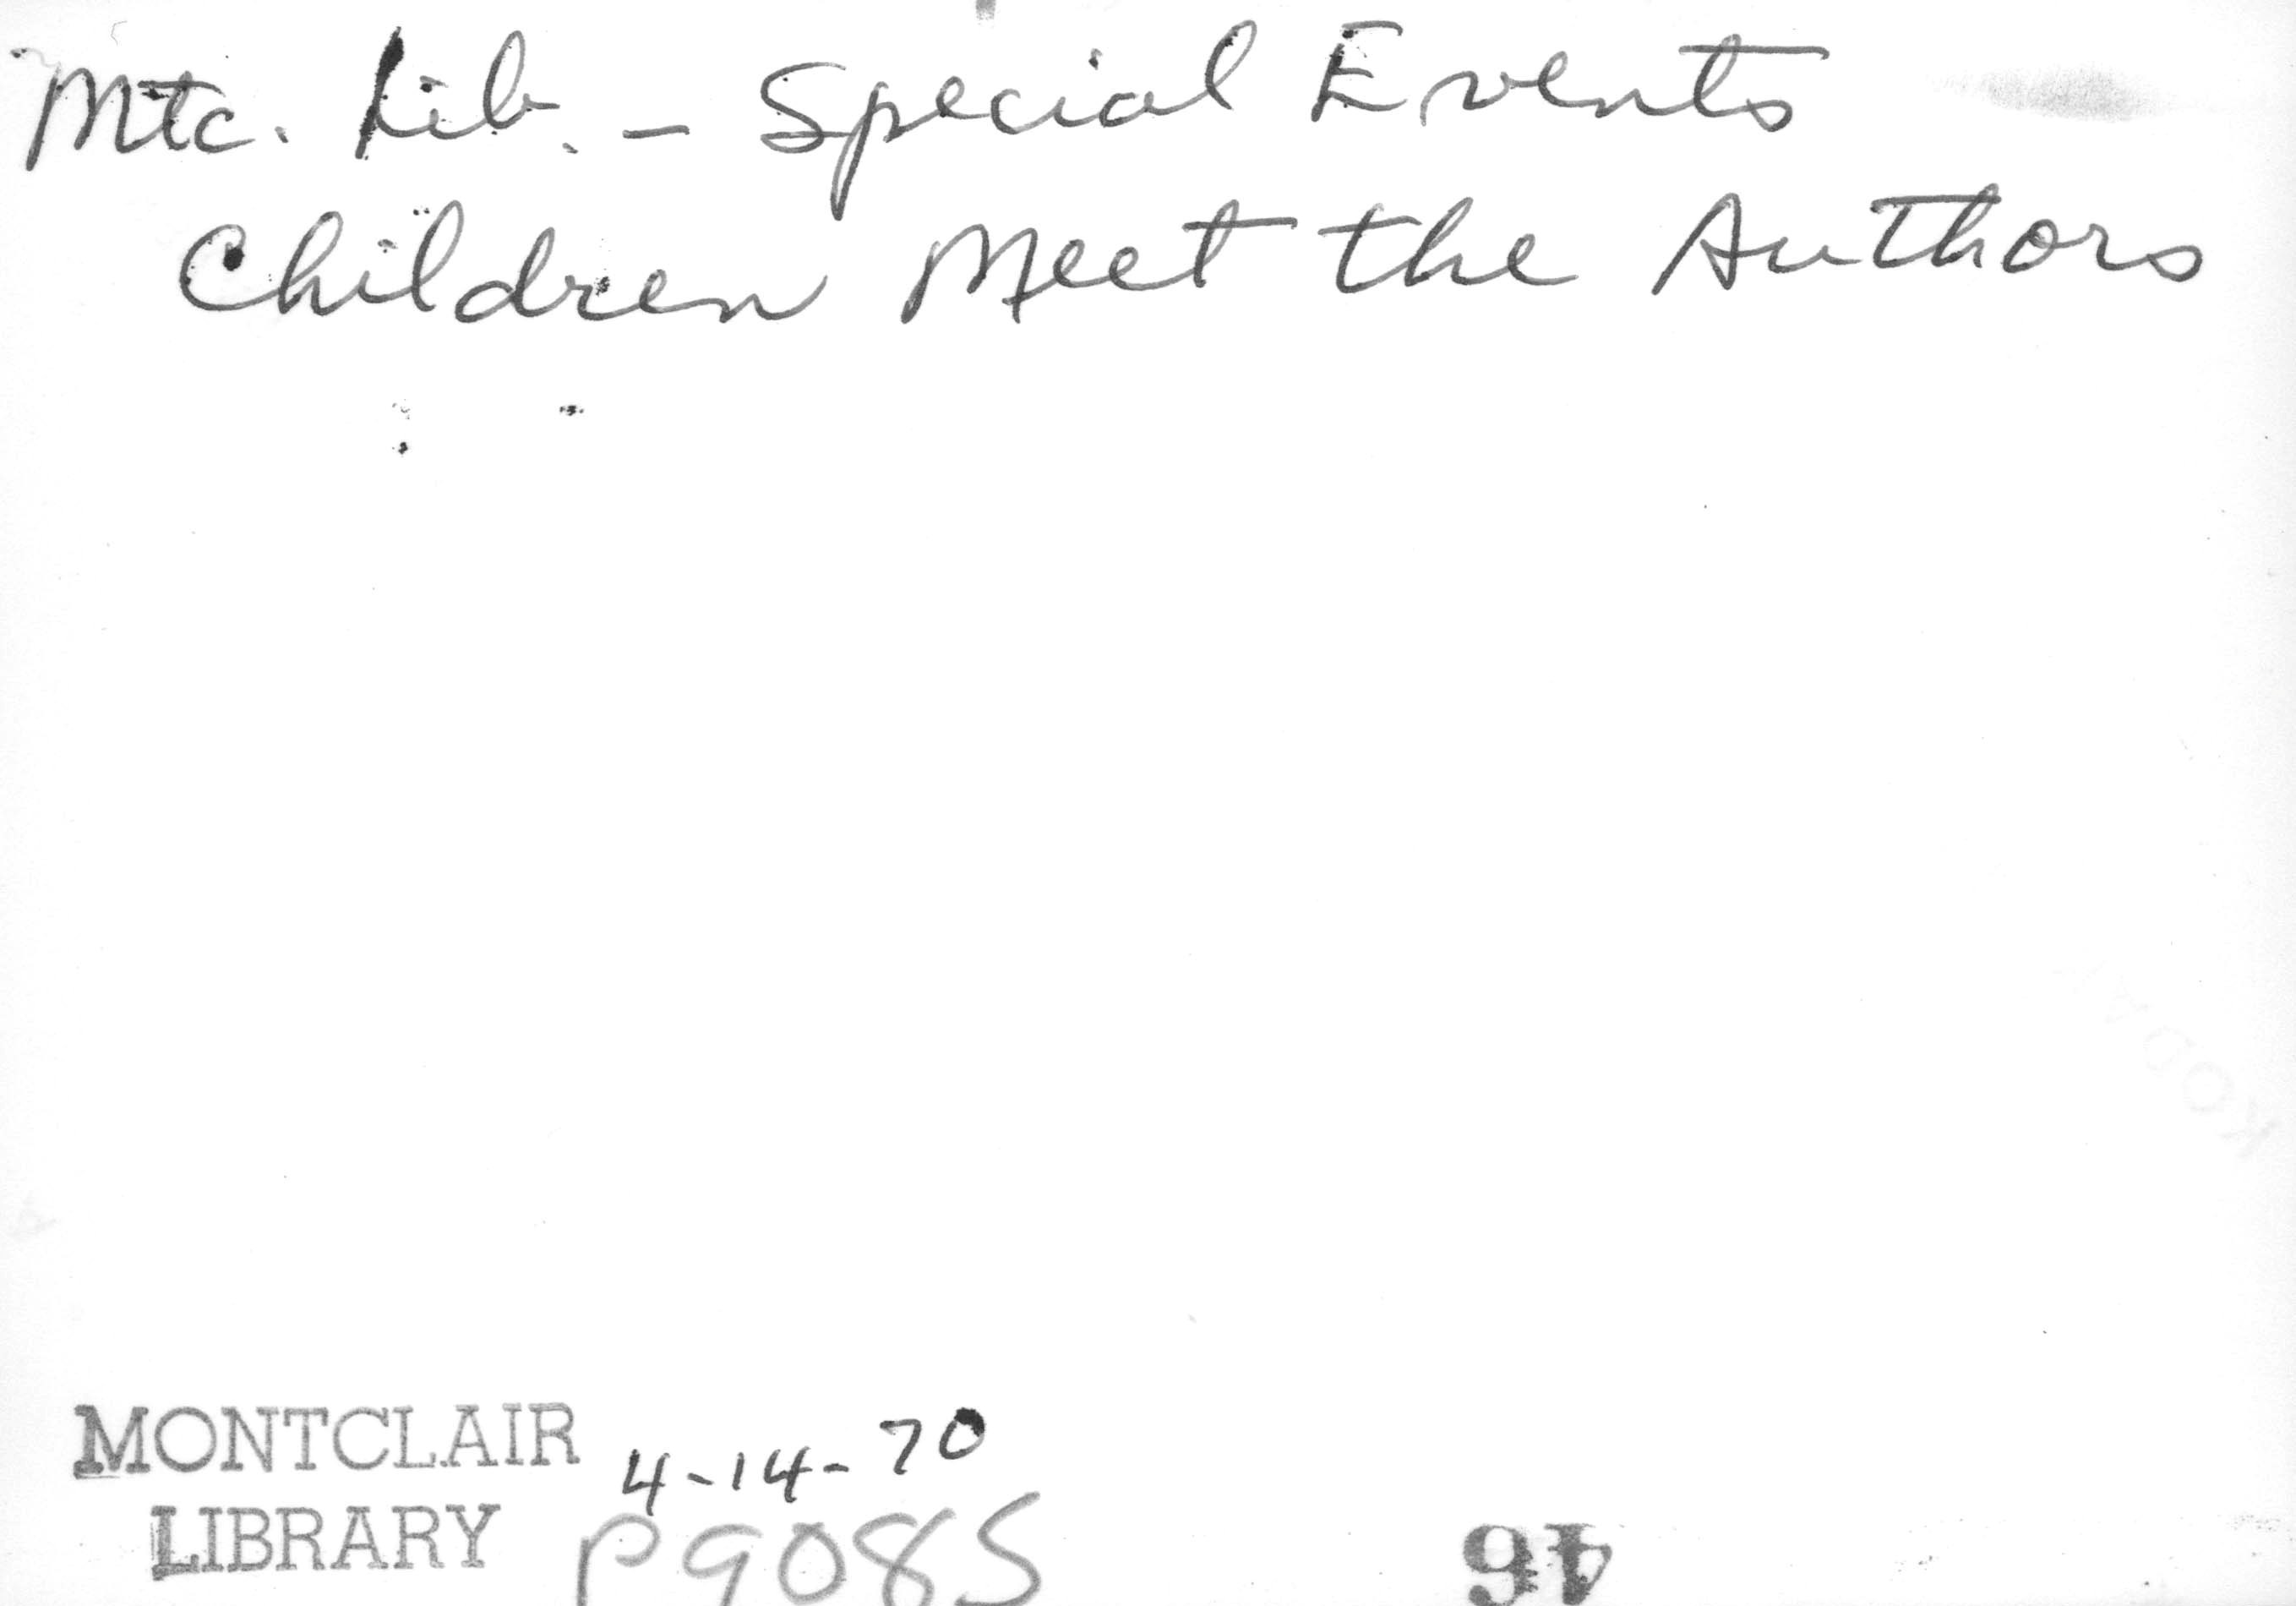 Mtc. Lib. - Special Events
Children Meet the Authors
MONTCLAIR
LIBRARY
4-14-70
P9085
46
KODAK